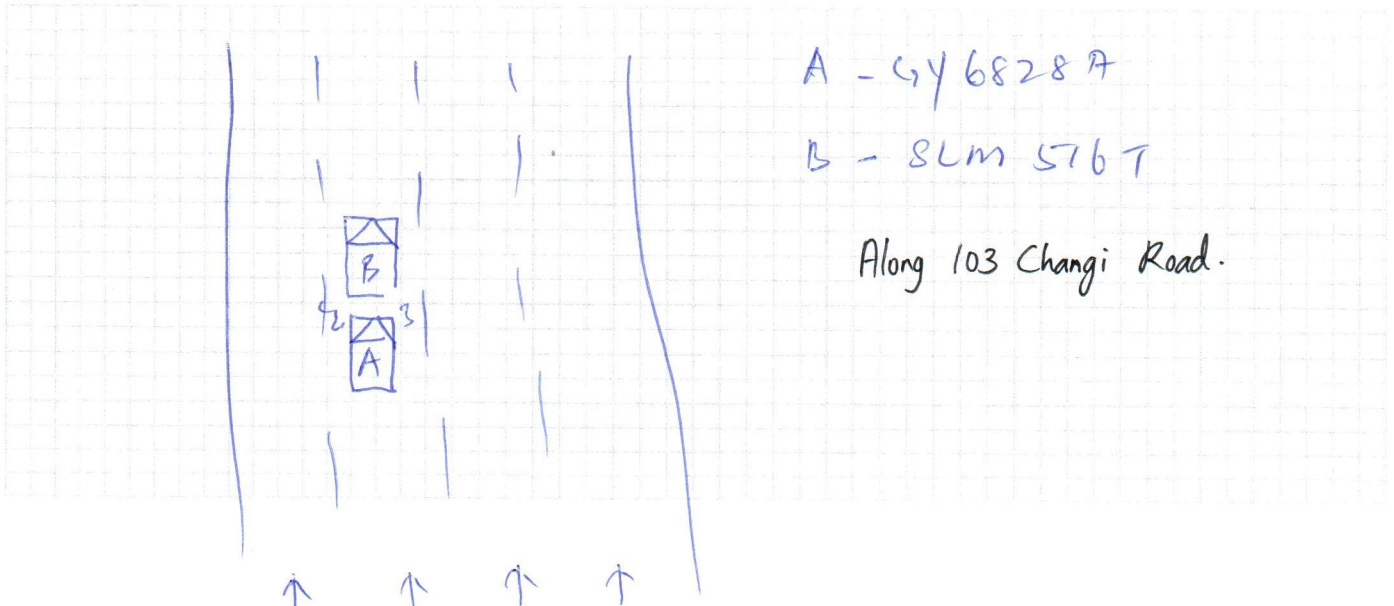 A - GY 6828 A
B - SLM 576 T
Along 103 Changi Road.
B
A